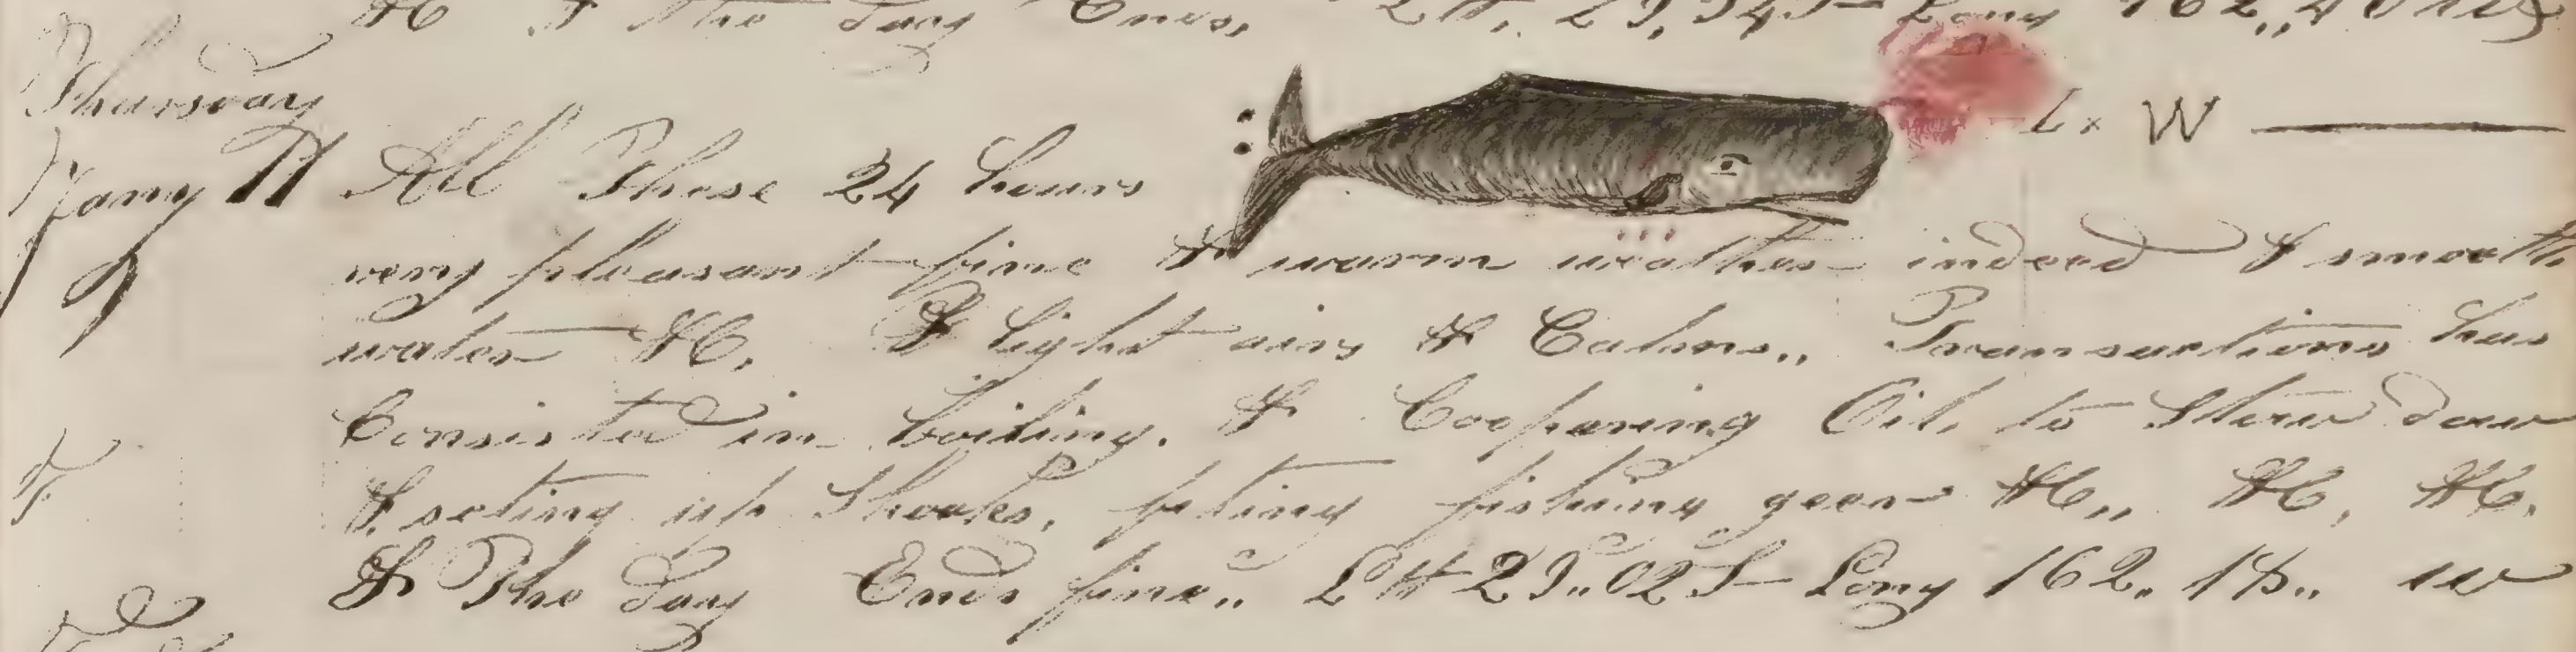 &C & The Day Ends, Lt, 29,34 S Long 162,, 40 W
Thursday
L x W
Jany 11 All These 24 hours
very pleasant fine & warm weather indeed & smooth
water &C, & light airs & Calms,, Transactions has
Consisted in boiling. & Coopering Oil, to Stow down
& seting up Shooks, fiting fishing gear &C,, &C, &C,
& The Day Ends fine,, Lt 29,,02 S Long 162,, 18,, W